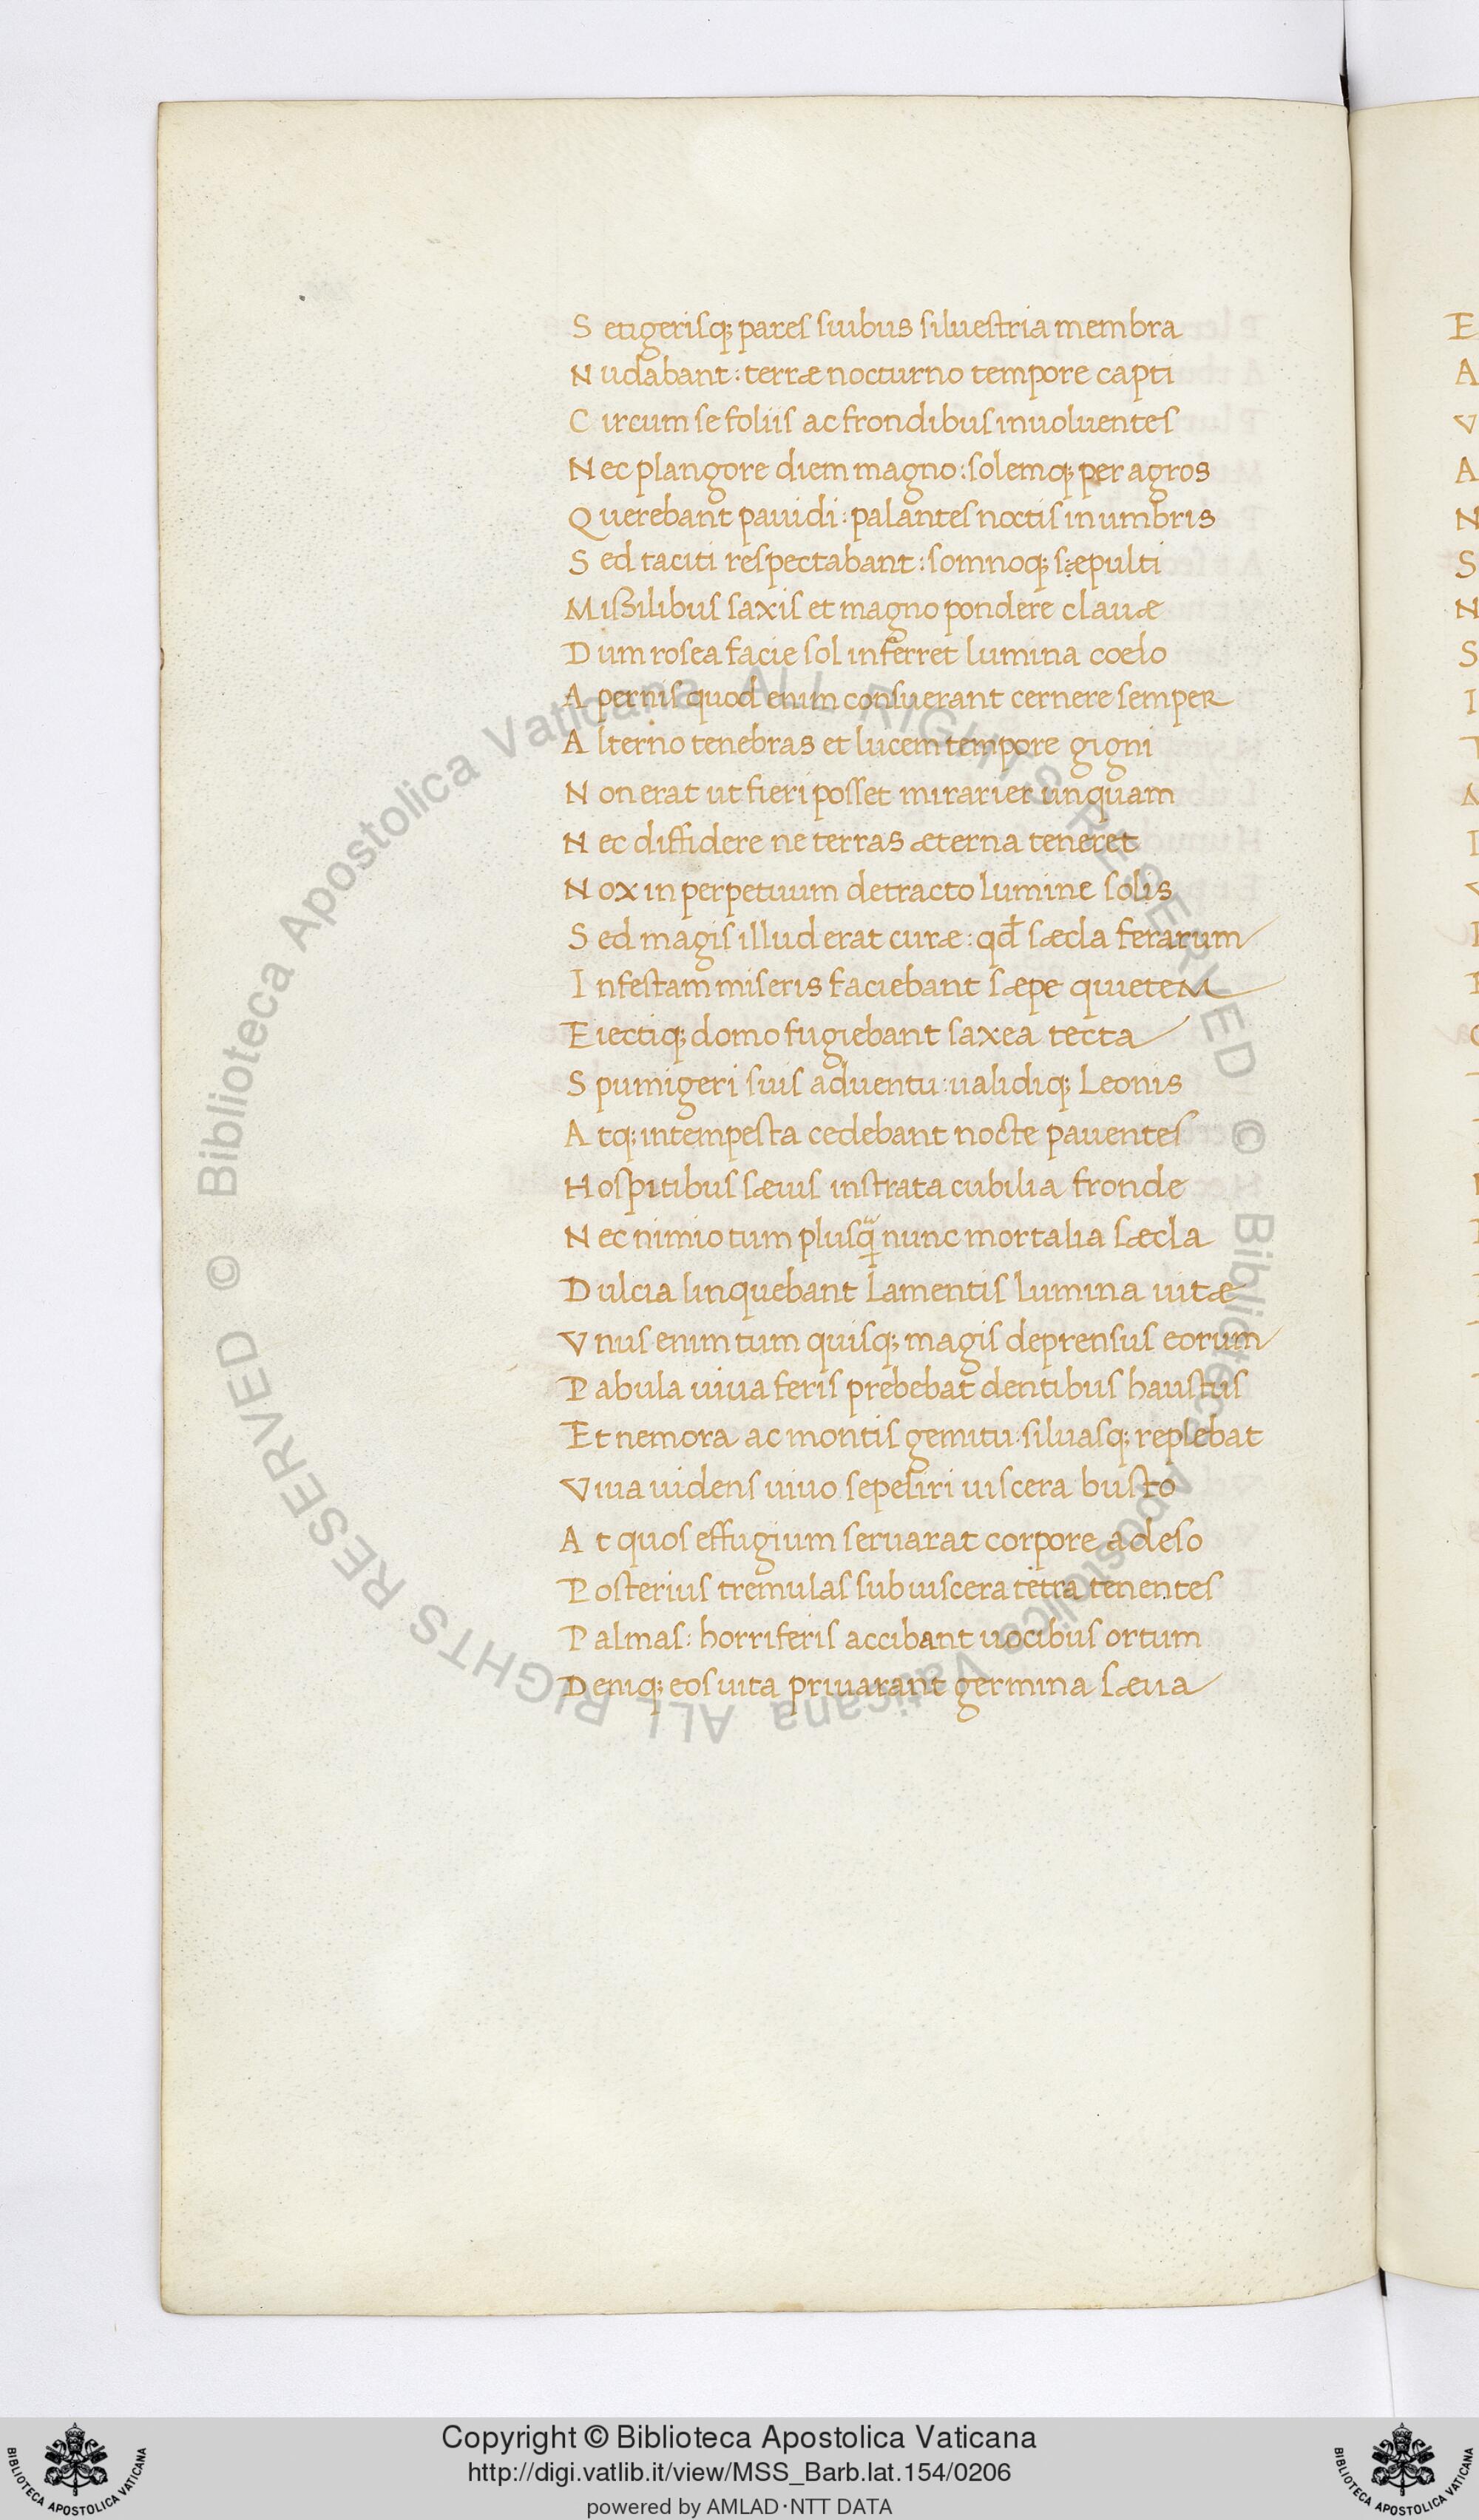 Setigerisq; pares suibus siluestria membra
Nudabant: terræ nocturno tempore capti
Circum se foliis ac frondibus inuoluentes
Nec plangore diem magno: solemq; per agros
Querebant pauidi: palantes noctis in umbris
Sed taciti respectabant: somnoq; sæpulti
Missilibus saxis et magno pondere clauæ
Dum rosea facie sol inferret lumina coelo
A pernis quod enim consuerant cernere semper
Alterno tenebras et lucem tempore gigni
Non erat ut fieri posset mirarier unquam
Nec diffidere ne terras æterna teneret
Nox in perpetuum detracto lumine solis
Sed magis illud erat curæ: qđ sæcla ferarum
Infestam miseris faciebant sæpe quietem
Eiectiq; domo fugiebant saxea tecta
Spumigeri suis aduentu: ualidiq; Leonis
Atq; intempesta cedebant nocte pauentes
Hospitibus sæuis instrata cubilia fronde
Nec nimio tum plusq̃ nunc mortalia sæcla
Dulcia linquebant lamentis lumina uitæ
Vnus enim tum quisq; magis deprensus eorum
Pabula uiua feris prebebat dentibus haustus
Et nemora ac montis gemitu: siluasq; replebat
Viua uidens uiuo sepeliri uiscera busto
At quos effugium seruarat corpore adeso
Posterius tremulas sub uiscera tetra tenentes
Palmas: horriferis accibant uocibus ortum
Deniq; eos uita priuarant germina sæua
E
A
V
A
N
S
N
S
I
© Biblioteca Apostolica Vaticana ALL RIGHTS RESERVED
© Biblioteca Apostolica Vaticana ALL RIGHTS RESERVED
Copyright © Biblioteca Apostolica Vaticana
http://digi.vatlib.it/view/MSS_Barb.lat.154/0206
powered by AMLAD·NTT DATA
BIBLIOTECA APOSTOLICA VATICANA
BIBLIOTECA APOSTOLICA VATICANA